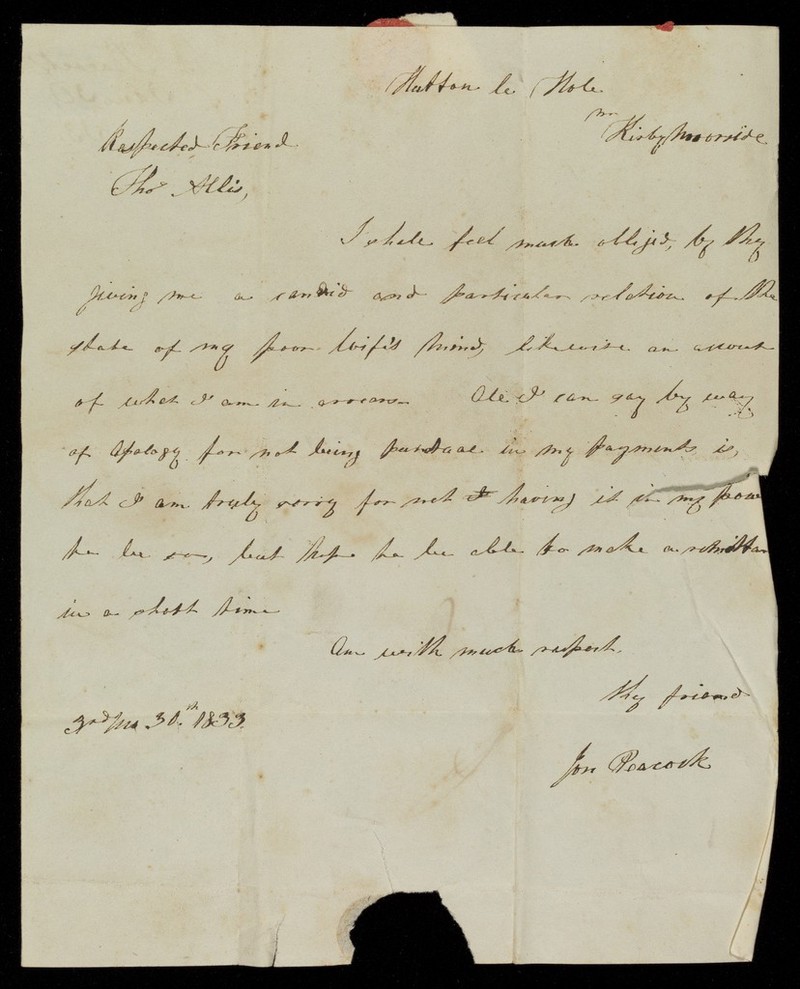 Hutton le Hole
nr Kirbymoorside
Respected Friend
Thos Allis,
I shall feel much obliged, by thy
giving me a candid and particular relation of the
state of my poor Wife's mind, likewise an account
of what I am in arrears. All I can say by way
of Apology for not being punctual in my payments is,
that I am truly sorry for not having it in my pow
to be so, but hope to be able to make a remittan
in a short time
Am with much respect.
thy friend
3rd mo 30th 1833
Jon Peacock